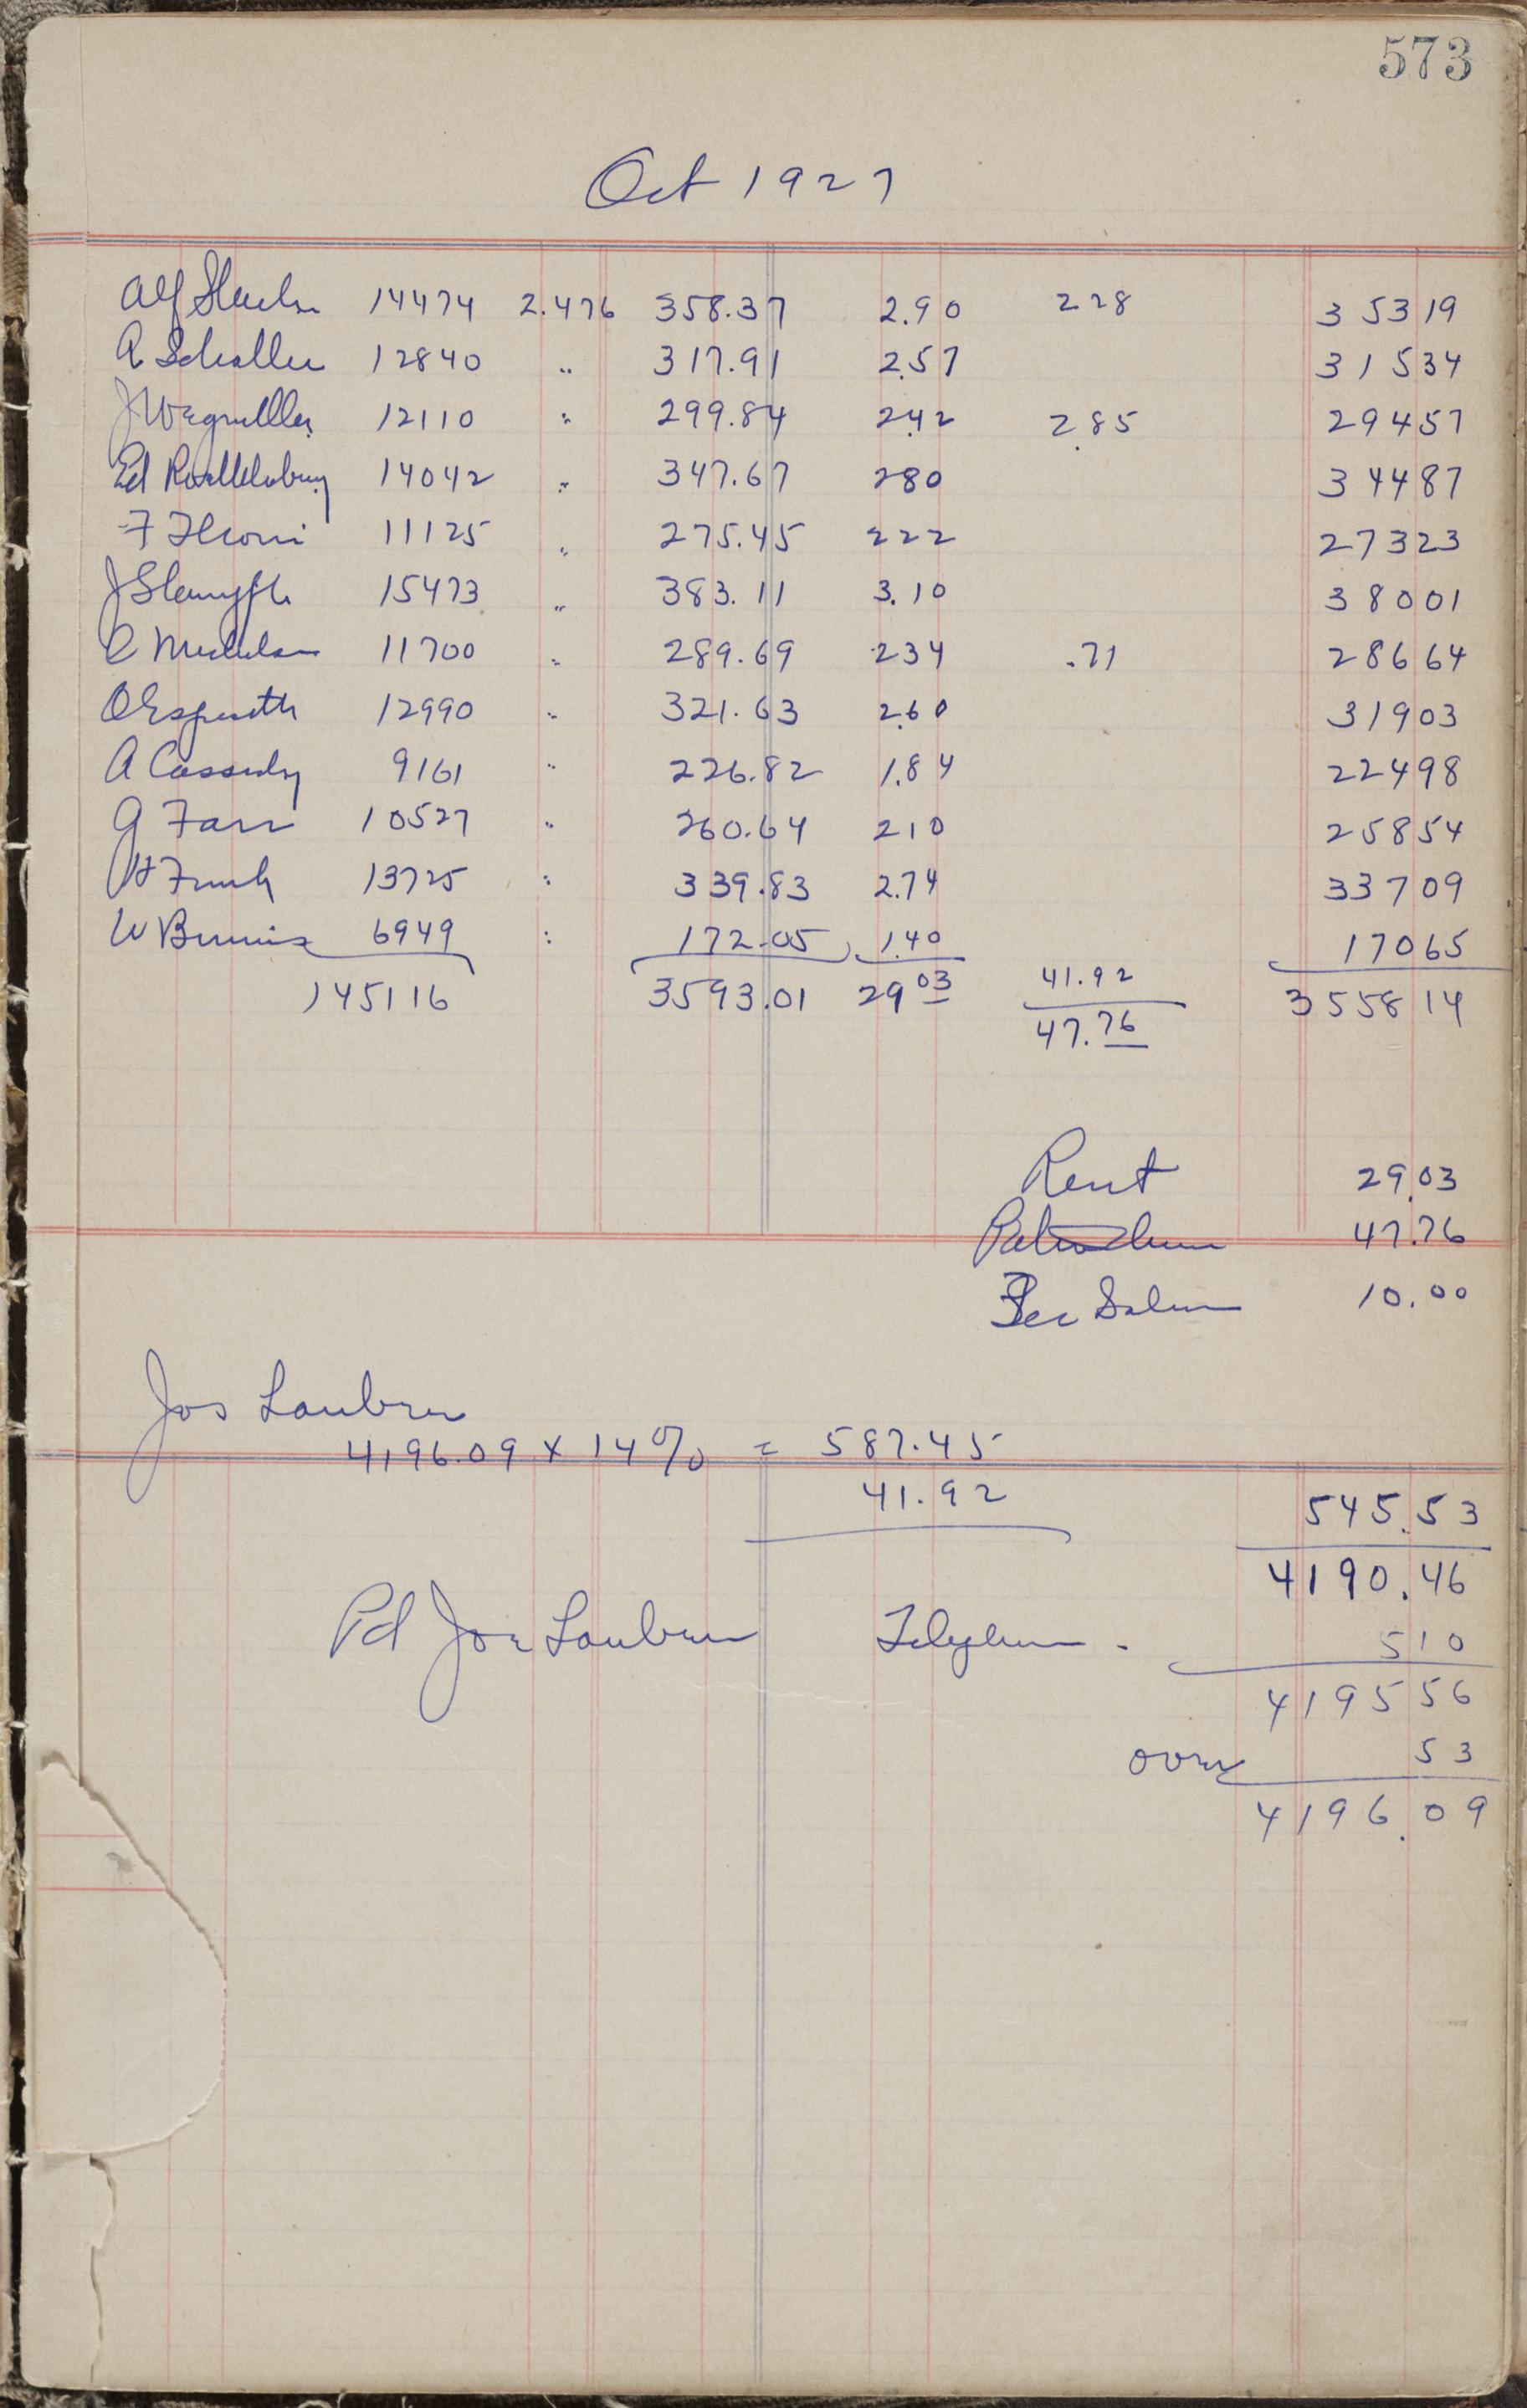 573
Oct 1927
Alf 14474 2.476 358.37 2.90 228 35319
A Schaller 12840 " 317.91 2.57 31534
J Wegmuller 12110 " 299.84 2.42 2.85 29457
Ed 14042 " 347.67 280 34487
F 11125 " 275.45 222 27323
J 15473 " 383.11 3.10 38001
11700 " 289.69 234 .71 28664
O 12990 " 321.63 2.60 31903
A Cassidy 9161 " 226.82 1.84 22498
G Farr 10527 " 260.64 210 25854
H 13725 " 339.83 2.74 33709
W 6949 " 172.05 1.40 17065
145116 3593.01 29 03 41.92 355814
47.76
Rent 29.03
47.76
Sec 10.00
Jos Laubner
4196.09 x 14% = 587.45
41.92 545.53
4190.46
Pd Joe Laubner 510
419556
over 53
4196.09